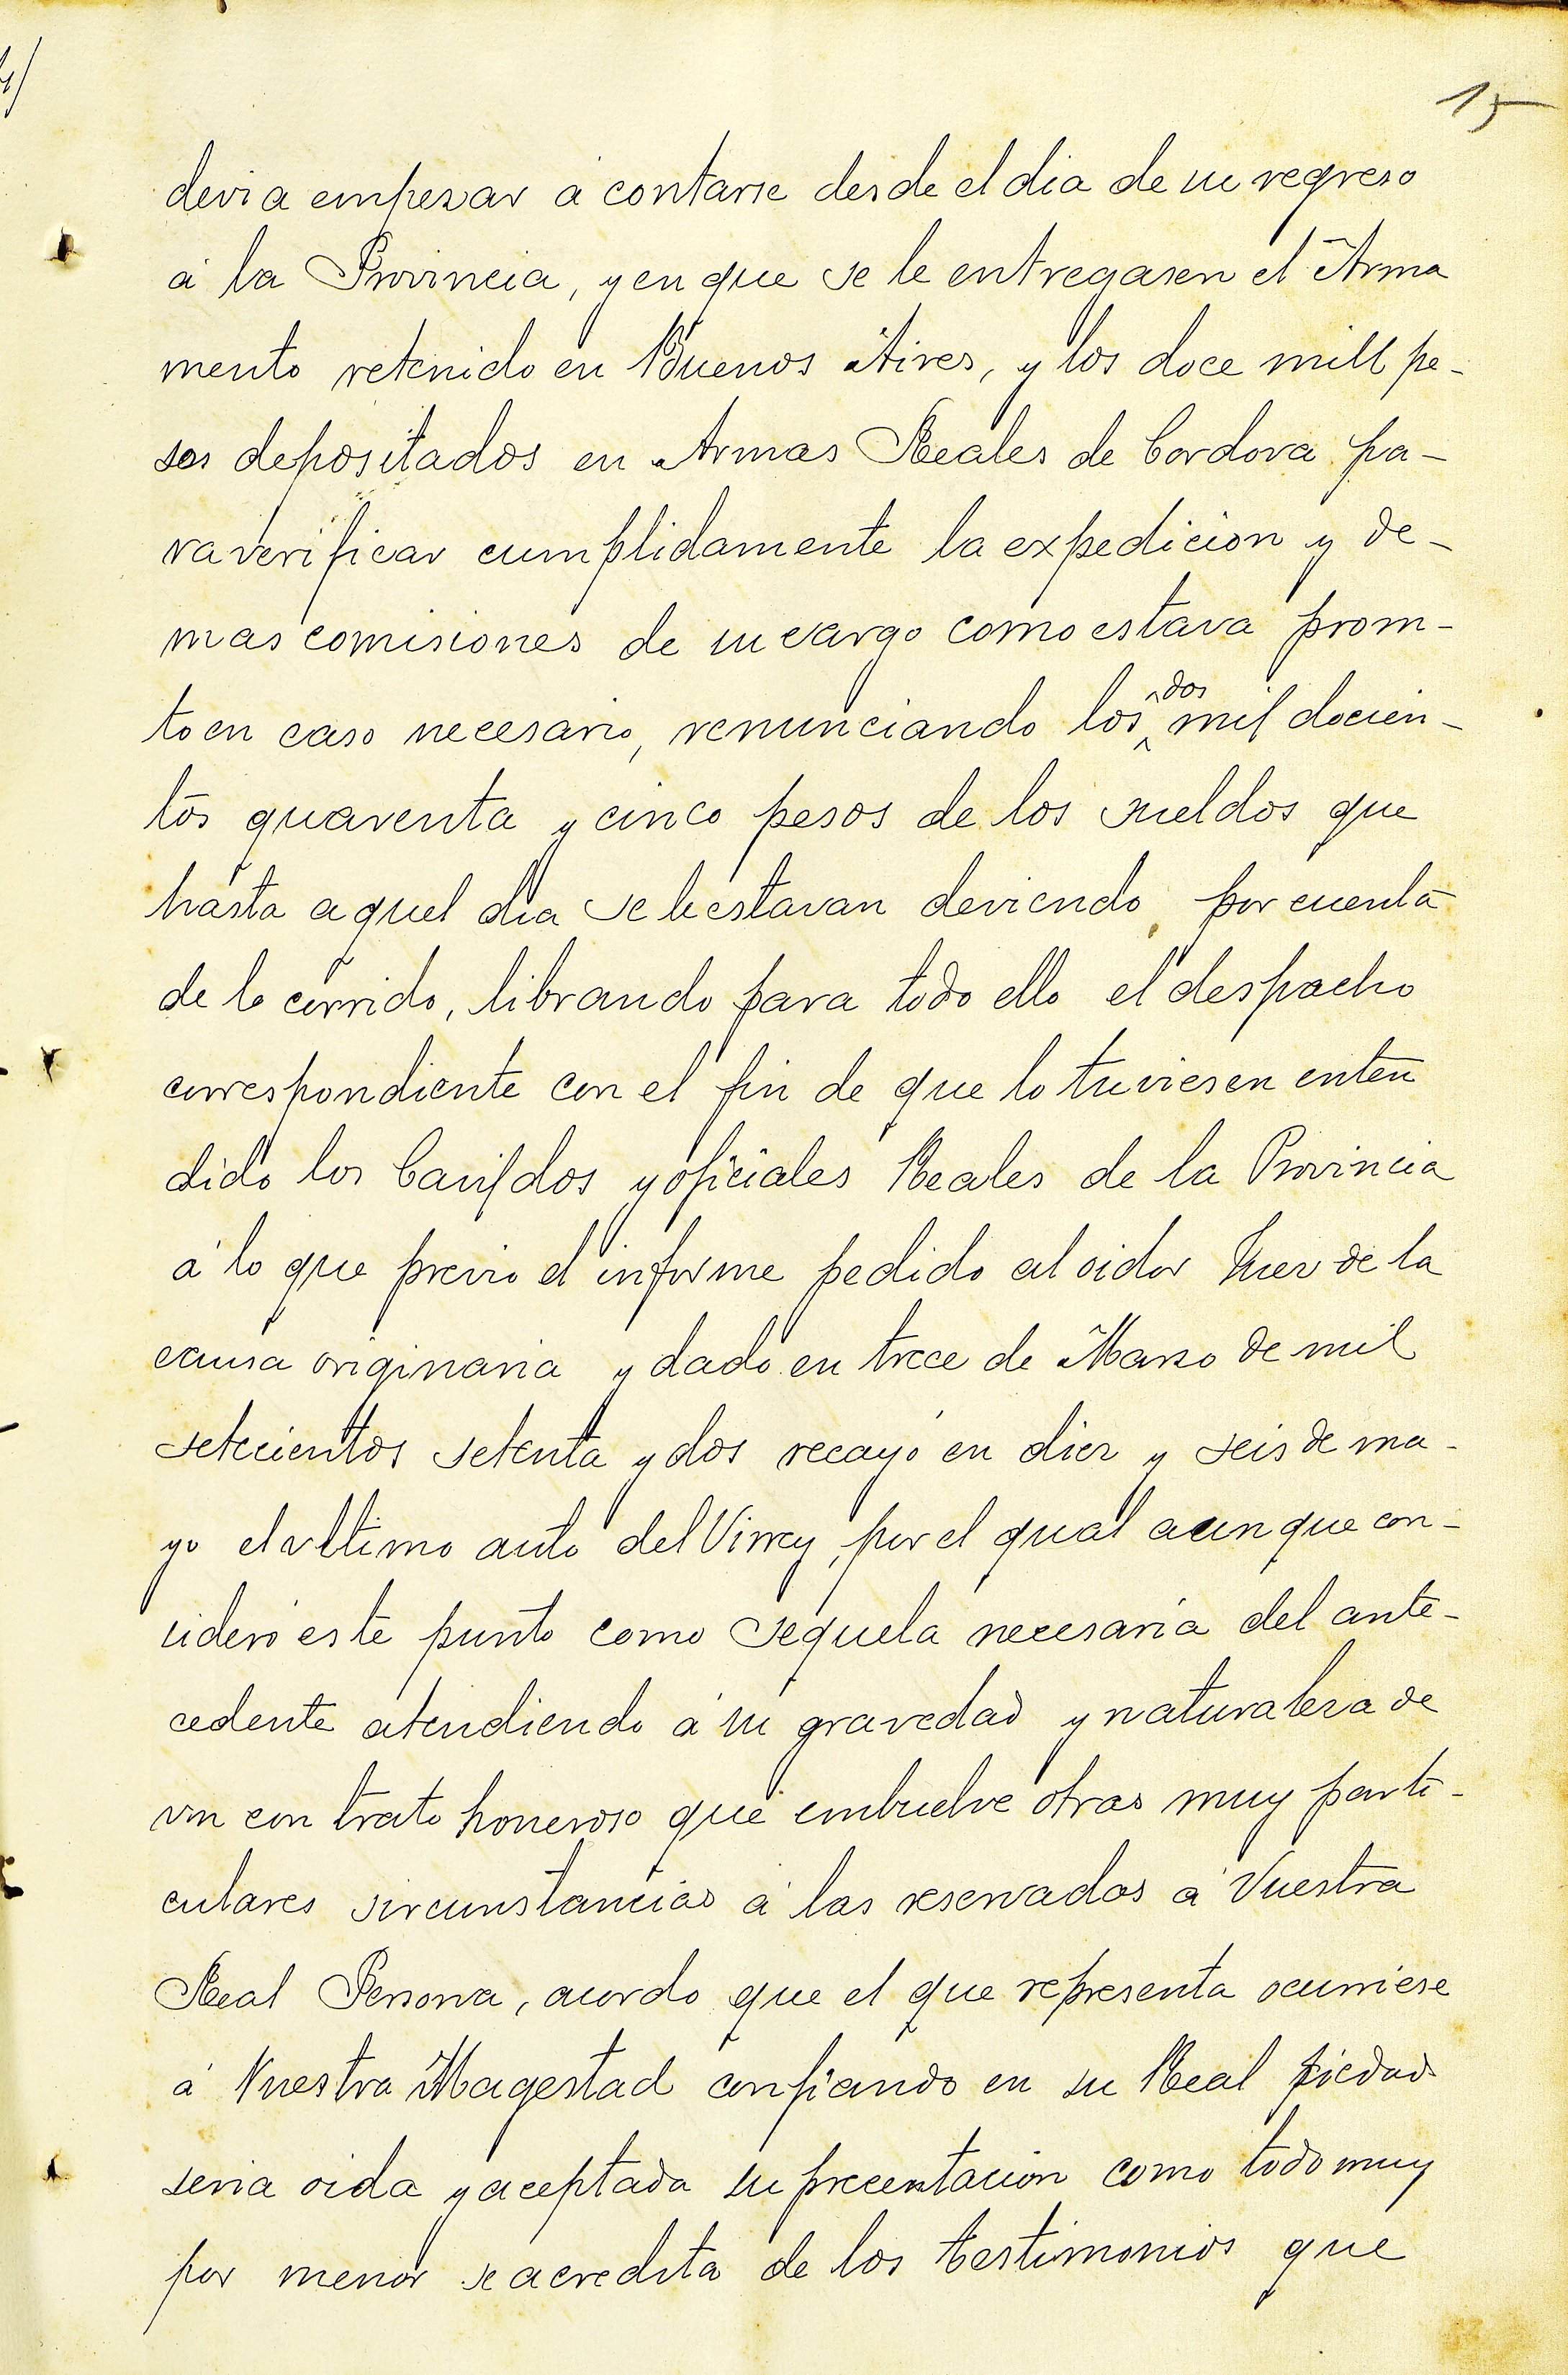 15
devia empezar á contarse desde el dia de su regreso
á la Provincia, y en que se le entregasen el Arma
mento retenido en Buenos Aires, y los doce mill pe-
sos depositados en Armas Reales de Cordova pa-
ra verificar cumplidamente la expedicion y de-
mas comisiones de su cargo como estava prom-
to en caso necesario, renunciando los dos mil docien-
tos quarenta y cinco pesos de los sueldos que
hasta aquel dia se le estavan deviendo, por cuenta
de lo corrido, librando para todo ello el despacho
correspondiente con el fin de que lo tuviesen enten
dido los Cavildos y oficiales Reales de la Provincia
á lo que previo el informe pedido al oidor Juez de la
causa originaria y dado en trece de Marzo de mil
setecientos setenta y dos recayó en diez y seis de ma-
yo el vltimo auto del Virrey, por el qual aunque con-
sideró este punto como sequela necesaria del ante-
cedente atendiendo á su gravedad y naturaleza de
vn contrato honeroso que embuelve otras muy parti-
culares sircunstancias á las reservadas á Vuestra
Real Persona, acordo que el que representa ocurriese
á Vuestra Magestad confiando en su Real piedad
seria oida y aceptada su precentacion como todo muy
por menor se acredita de los testimonios que